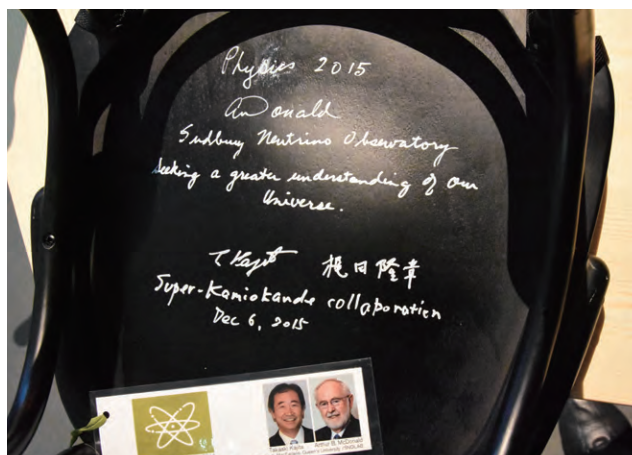 Physics 2015
Sudbury Neutrino Observatory
Seeking a greater understanding of our
Universe.
T. Kajita 梶田隆章
Super-Kamiokande collaboration
Dec 6, 2015
Takaaki Kajita Arthur B. McDonald
Queen's University /SNOLAB